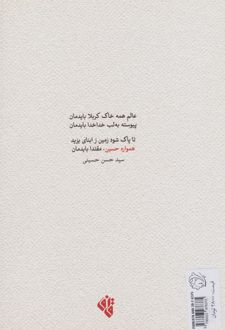 عالم همه خاک کربلا بایدمان
پیوسته به لب خداخدا بایدمان
تا پاک شود زمین ز ابنای یزید
همواره حسین، مقتدا بایدمان
سید حسن حسینی